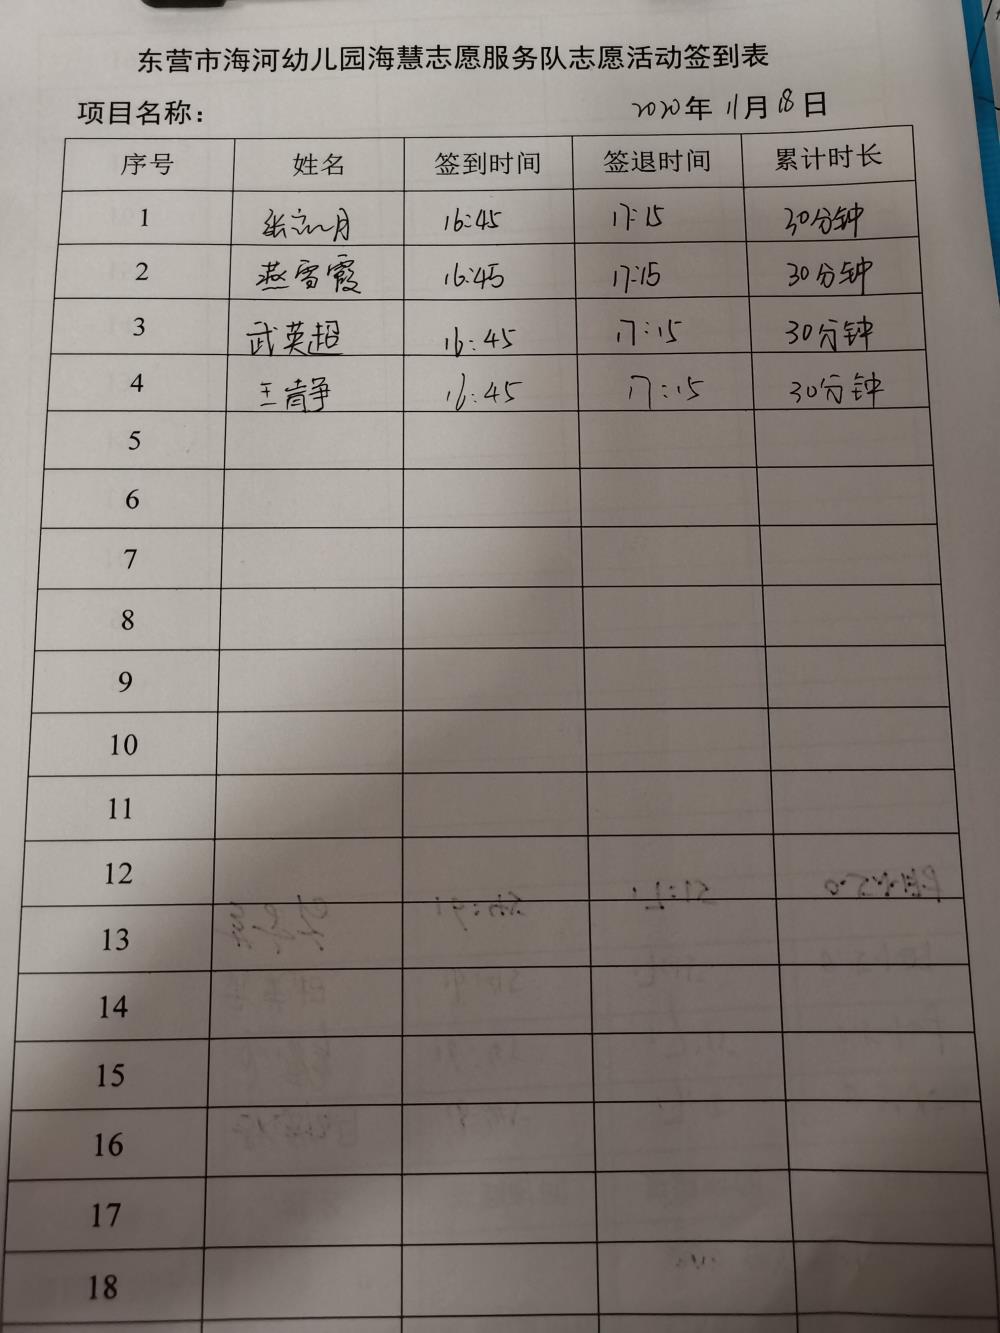 东营市海河幼儿园海慧志愿服务队志愿活动签到表
项目名称： 2020年 11月 18日
序号 姓名 签到时间 签退时间 累计时长
1 16:45 17:15 30分钟
2 燕雪霞 16:45 17:15 30分钟
3 武英超 16:45 17:15 30分钟
4 王静 16:45 17:15 30分钟
5
6
7
8
9
10
11
12
13
14
15
16
17
18